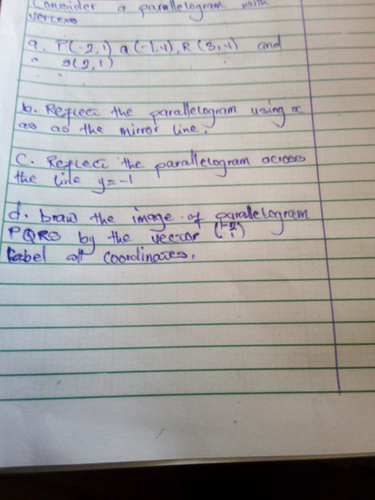 Consider a parallelogram with
vertexs
a. P(-2,1) Q(-1,4), R(3,4) and
S(2,1)
b. Reflect the parallelogram using x
as as the mirror line.
C. Reflect the parallelogram across
the line y=-1
d. Draw the image of parallelogram
PQRS by the vector
Label all coordinates.